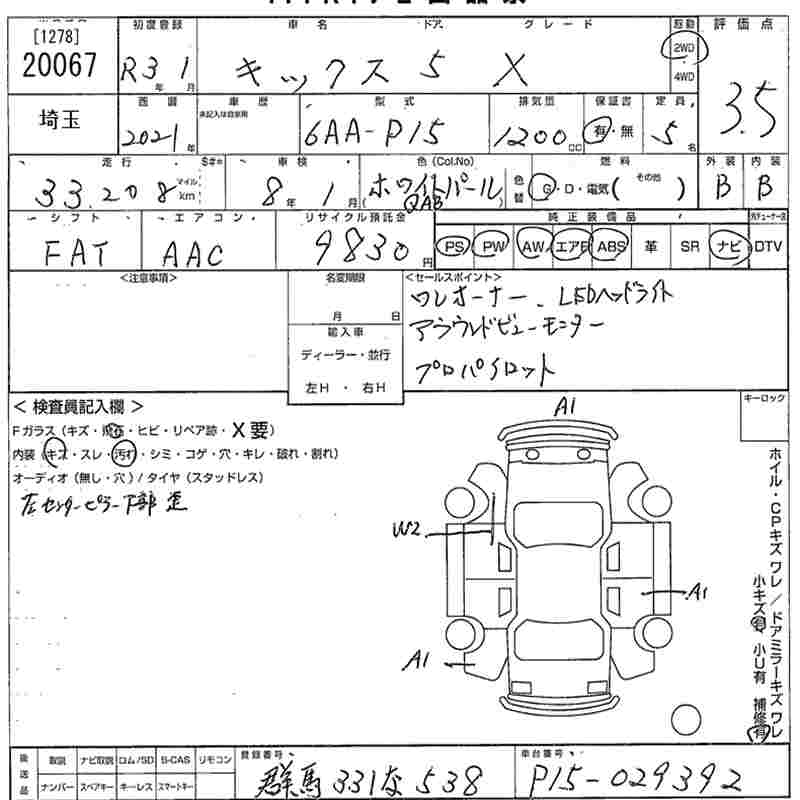 [1278]
20067
初度登録 車名 ドア グレード 駆動 評価点
R3年 1月 キックス 5 X 2WD 4WD 3.5
埼玉
西暦 車歴 型式 排気量 保証書 定員
2021年 未記入は自家用 6AA-P15 1200cc 有・無 5名
走行 S#* 車検 色(Col.No) 燃料 外装 内装
33,208 マイル km 8年 1月 ホワイトパール QAB 色替 G・D・電気( その他 ) B B
シフト エアコン リサイクル預託金 純正装備品
FAT AAC 9830円 PS PW AW エアB ABS 革 SR ナビ DTV
<注意事項> 名変期限 <セールスポイント>
月 日 ワンオーナー、LEDヘッドライト
輸入車 アラウンドビューモニター
ディーラー・並行 プロパイロット
左H・右H
<検査員記入欄> キーロック
Fガラス(キズ・飛石・ヒビ・リペア跡・X要)
内装(キズ・スレ・汚れ・シミ・コゲ・穴・キレ・破れ・割れ)
オーディオ(無し・穴)/タイヤ(スタッドレス)
左センターピラー下部 歪
A1
W2
A1
A1
ホイル・CPキズ ワレ/ドアミラーキズ ワレ
小キズ有 小U有 補修有
後送品 取説 ナビ取説 ロム/SD B-CAS リモコン 登録番号 車台番号
ナンバー スペアキー キーレス スマートキー 群馬 331 な 538 P15-029392